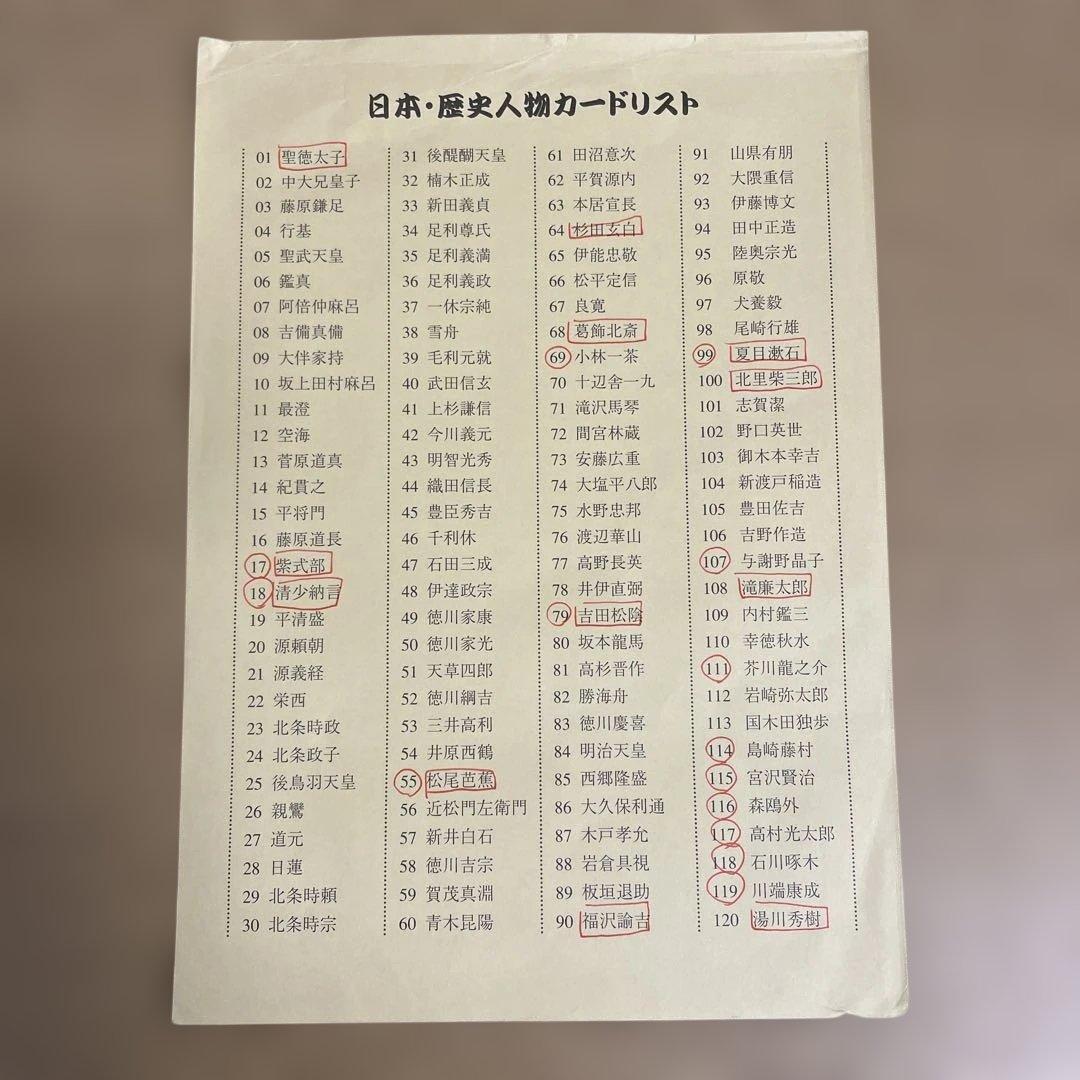 日本・歴史人物カードリスト
01 聖徳太子
02 中大兄皇子
03 藤原鎌足
04 行基
05 聖武天皇
06 鑑真
07 阿倍仲麻呂
08 吉備真備
09 大伴家持
10 坂上田村麻呂
11 最澄
12 空海
13 菅原道真
14 紀貫之
15 平将門
16 藤原道長
17 紫式部
18 清少納言
19 平清盛
20 源頼朝
21 源義経
22 栄西
23 北条時政
24 北条政子
25 後鳥羽天皇
26 親鸞
27 道元
28 日蓮
29 北条時頼
30 北条時宗
31 後醍醐天皇
32 楠木正成
33 新田義貞
34 足利尊氏
35 足利義満
36 足利義政
37 一休宗純
38 雪舟
39 毛利元就
40 武田信玄
41 上杉謙信
42 今川義元
43 明智光秀
44 織田信長
45 豊臣秀吉
46 千利休
47 石田三成
48 伊達政宗
49 徳川家康
50 徳川家光
51 天草四郎
52 徳川綱吉
53 三井高利
54 井原西鶴
55 松尾芭蕉
56 近松門左衛門
57 新井白石
58 徳川吉宗
59 賀茂真淵
60 青木昆陽
61 田沼意次
62 平賀源内
63 本居宣長
64 杉田玄白
65 伊能忠敬
66 松平定信
67 良寛
68 葛飾北斎
69 小林一茶
70 十辺舎一九
71 滝沢馬琴
72 間宮林蔵
73 安藤広重
74 大塩平八郎
75 水野忠邦
76 渡辺華山
77 高野長英
78 井伊直弼
79 吉田松陰
80 坂本龍馬
81 高杉晋作
82 勝海舟
83 徳川慶喜
84 明治天皇
85 西郷隆盛
86 大久保利通
87 木戸孝允
88 岩倉具視
89 板垣退助
90 福沢諭吉
91 山県有朋
92 大隈重信
93 伊藤博文
94 田中正造
95 陸奥宗光
96 原敬
97 犬養毅
98 尾崎行雄
99 夏目漱石
100 北里柴三郎
101 志賀潔
102 野口英世
103 御木本幸吉
104 新渡戸稲造
105 豊田佐吉
106 吉野作造
107 与謝野晶子
108 滝廉太郎
109 内村鑑三
110 幸徳秋水
111 芥川龍之介
112 岩崎弥太郎
113 国木田独歩
114 島崎藤村
115 宮沢賢治
116 森鴎外
117 高村光太郎
118 石川啄木
119 川端康成
120 湯川秀樹